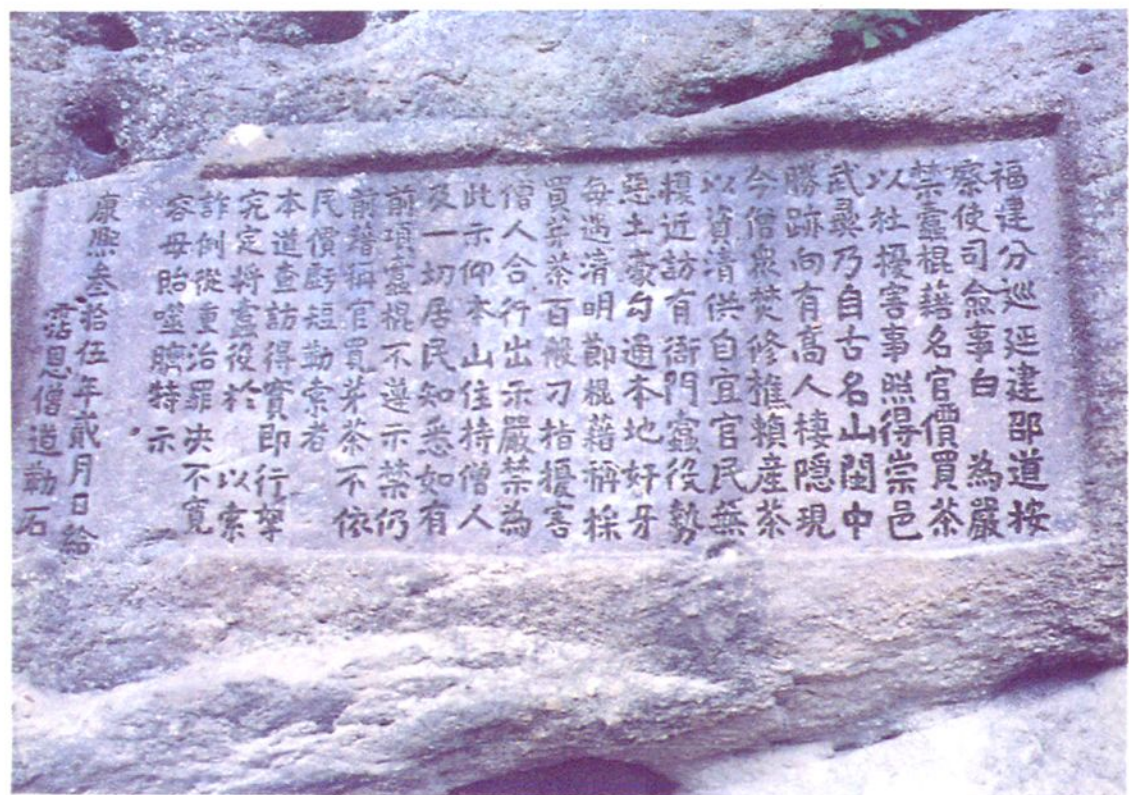 福建分巡延建邵道按
察使司僉事白　為嚴
禁蠹棍藉名官價買茶
以杜擾害事照得崇邑
武彝乃自古名山閩中
勝跡向有高人棲隱現
今僧眾焚修惟賴產茶
以資清供自宜官民無
擾近訪有衙門蠹役勢
惡土豪勾通本地奸牙
每遇清明節棍藉稱採
買芽茶百般刁指擾害
僧人合行出示嚴禁為
此示仰本山住持僧人
及一切居民知悉如有
前項蠹棍不遵示禁仍
前藉稱官買芽茶不依
民價虧短勒索者
本道查訪得實即行拏
究定將蠹役於　以索
詐例從重治罪決不寬
容毋貽噬臍特示
康熙叁拾伍年貳月日給
霑恩僧道勒石